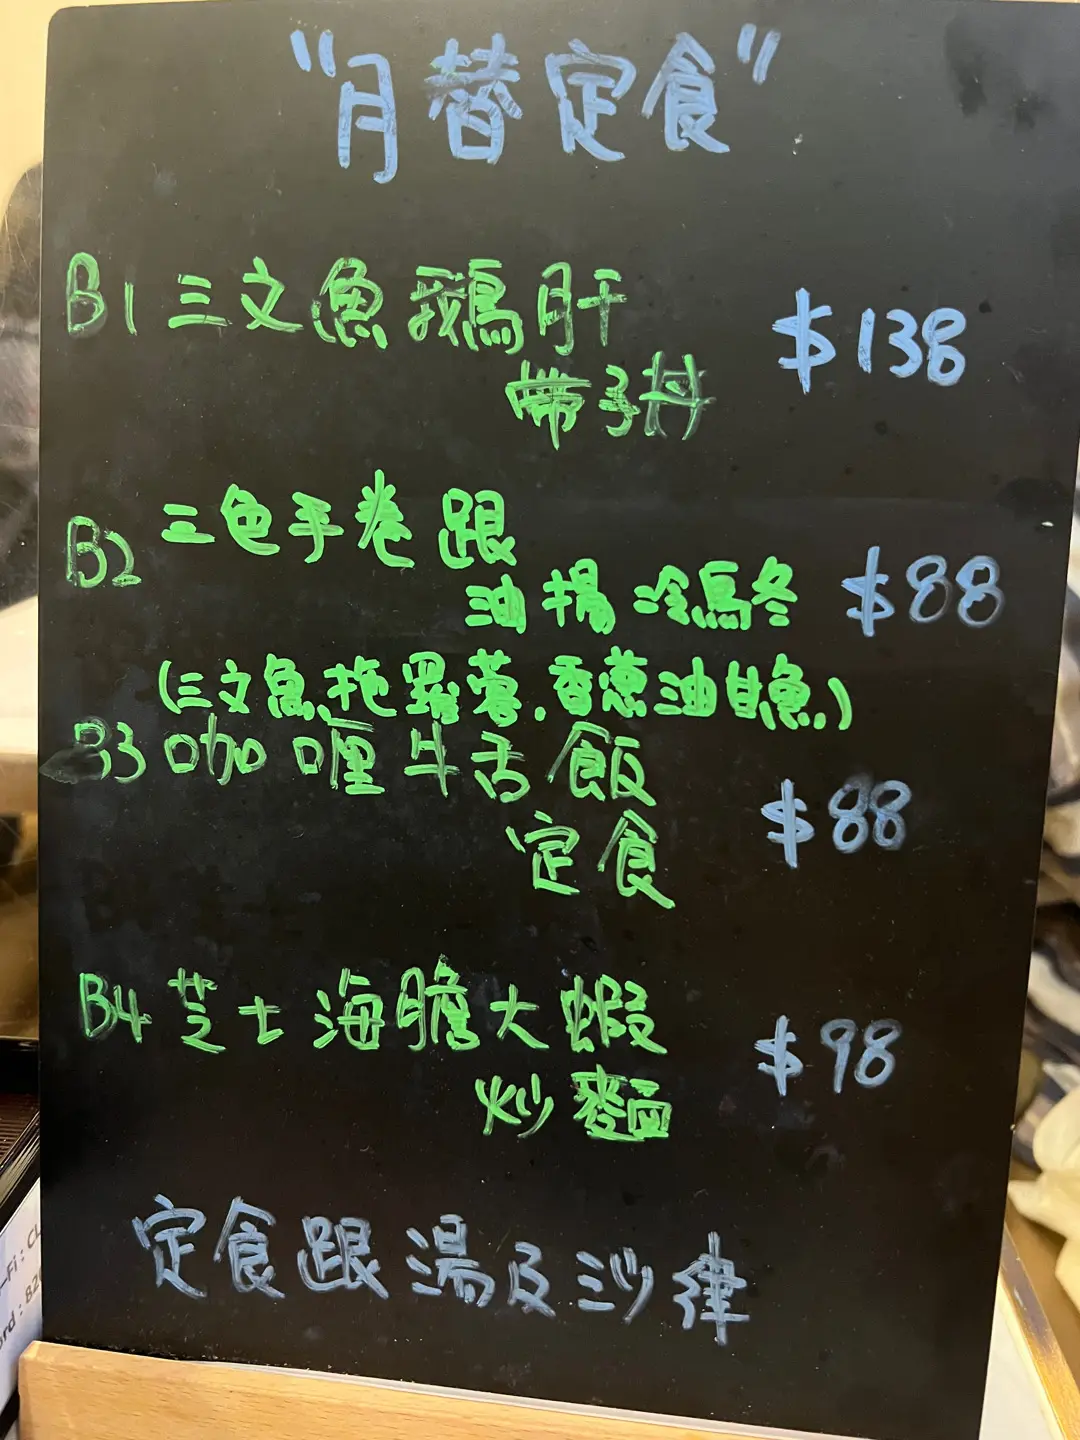 "月替定食"
B1 三文魚鵝肝
帶子丼
$138
B2 三色手卷跟
油揚冷烏冬
$88
(三文魚,拖羅蓉,香蔥油甘魚)
B3 咖喱牛舌飯
定食
$88
B4 芝士海膽大蝦
炒麵
$98
定食跟湯及沙律
-Fi : CL
ord : 820